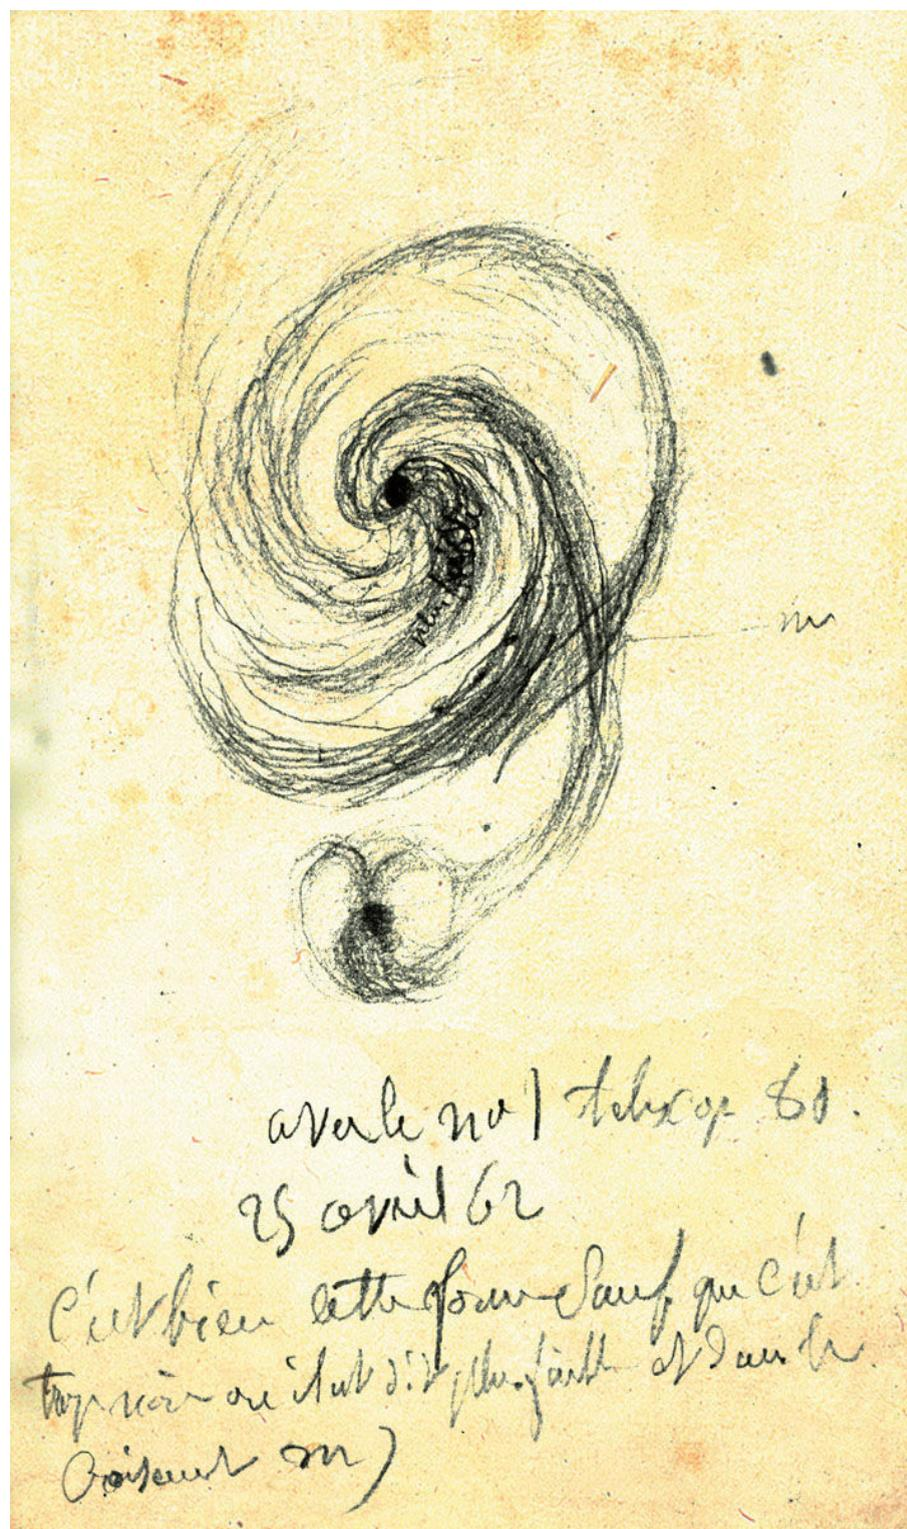 m
plus faible
avec le no 1 telescop 80.
25 avril 62
C'est bien cette forme sauf que c'est
trop noir où il est dit plus faible et dans le
croisement m)